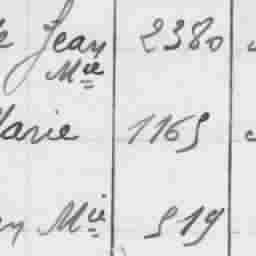 Jean 2380
Mie
Marie 1165
Mie 519